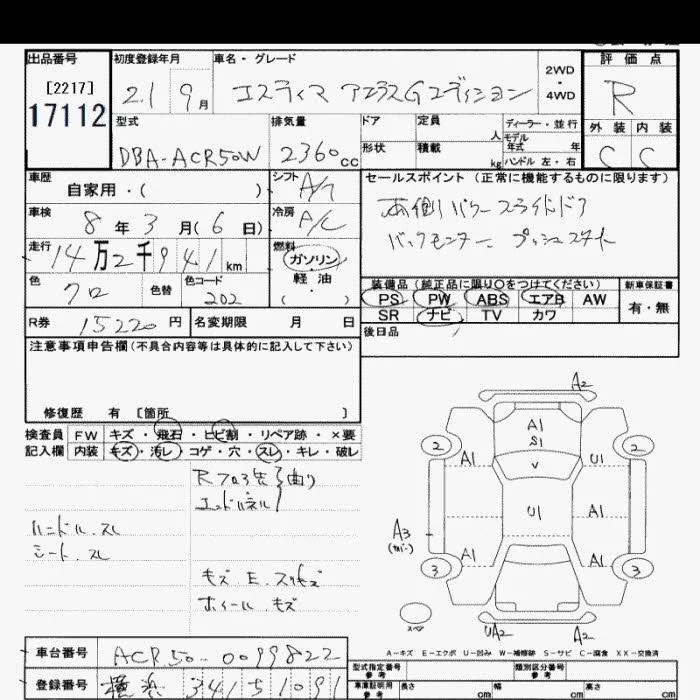 出品番号 初度登録年月 車名・グレード 2WD・4WD 評価点
[2217]
17112
21 9月 エスティマ アエラスGエディション R
型式 排気量 ドア 定員 人 ディーラー・並行 外装 内装
形状 積載 kg モデル年式 年 ハンドル 左・右
DBA-ACR50W 2360cc C C
車歴 シフト セールスポイント (正常に機能するものに限ります)
自家用・( ) A/T
車検 冷房 両側パワースライドドア
8年3月(6日) A/C バックモニター プッシュスタート
走行 燃料
14万2千941km ガソリン
軽油
・
( )
色 色替 色コード 装備品 (純正品に限り○をつけてください) 新車保証書
クロ 202 PS PW ABS エアB AW 有・無
SR ナビ TV カワ
R券 15220円 名変期限 月 日 後日品
注意事項申告欄(不具合内容等は具体的に記入して下さい)
修復歴 有 [箇所 ]
検査員 FW キズ・飛石・ヒビ割・リペア跡・×要
記入欄 内装 キズ・汚レ・コゲ・穴・スレ・キレ・破レ
Rフロア先 曲り
エンドパネル
ハンドル.スレ
シート.スレ
キズ E.
ホイール.キズ
A2
A1
S1
2 2
A1 V U1
U1 A1
A3
(カバー)
A1 A1
3 3
スペア
UA2 A2
A-キズ E-エクボ U-凹み W-補修跡 S-サビ C-腐食 XX-交換済
車台番号 ACR50-0099822 型式指定番号 参考 類別区分番号 参考
登録番号 横浜 341 5 1091 車庫証明用 参考 長さ cm 幅 cm 高さ cm